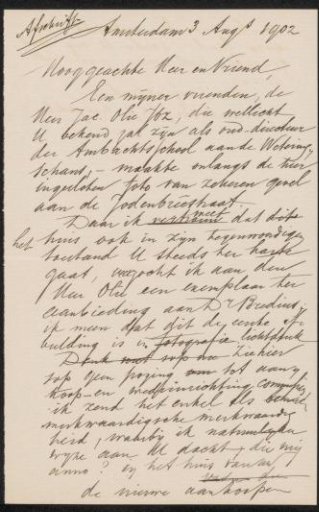 Afschrift
Amsterdam 3 Augs 1902
Hooggeachte Heer en Vriend,
Een mijner vrienden, de
Heer Jac. Olie Jbz, die wellicht
U bekend zal zijn als oud-directeur
der Ambachtsschool aan de Wetering-
schans, – maakte onlangs de hier
ingesloten foto van zekeren gevel
aan de Jodenbreestraat.
Daar ik weet dat dit
huis ook in zijn tegenwoordigen
toestand U steeds ter harte
gaat, verzocht ik aan den
Heer Olie een exemplaar ter
aanbieding aan Dr Bredius,
ik meen dat dit de eerste af-
beelding is in lichtdruk
Zie hier
s.v.p. geen poging tot aan-
koop – en
ik zend het enkel als
merkwaardigsche merkwaardig
heid, waarbij ik natuurlijker
wijze aan U dacht,
het huis
de nieuwe aankoopen